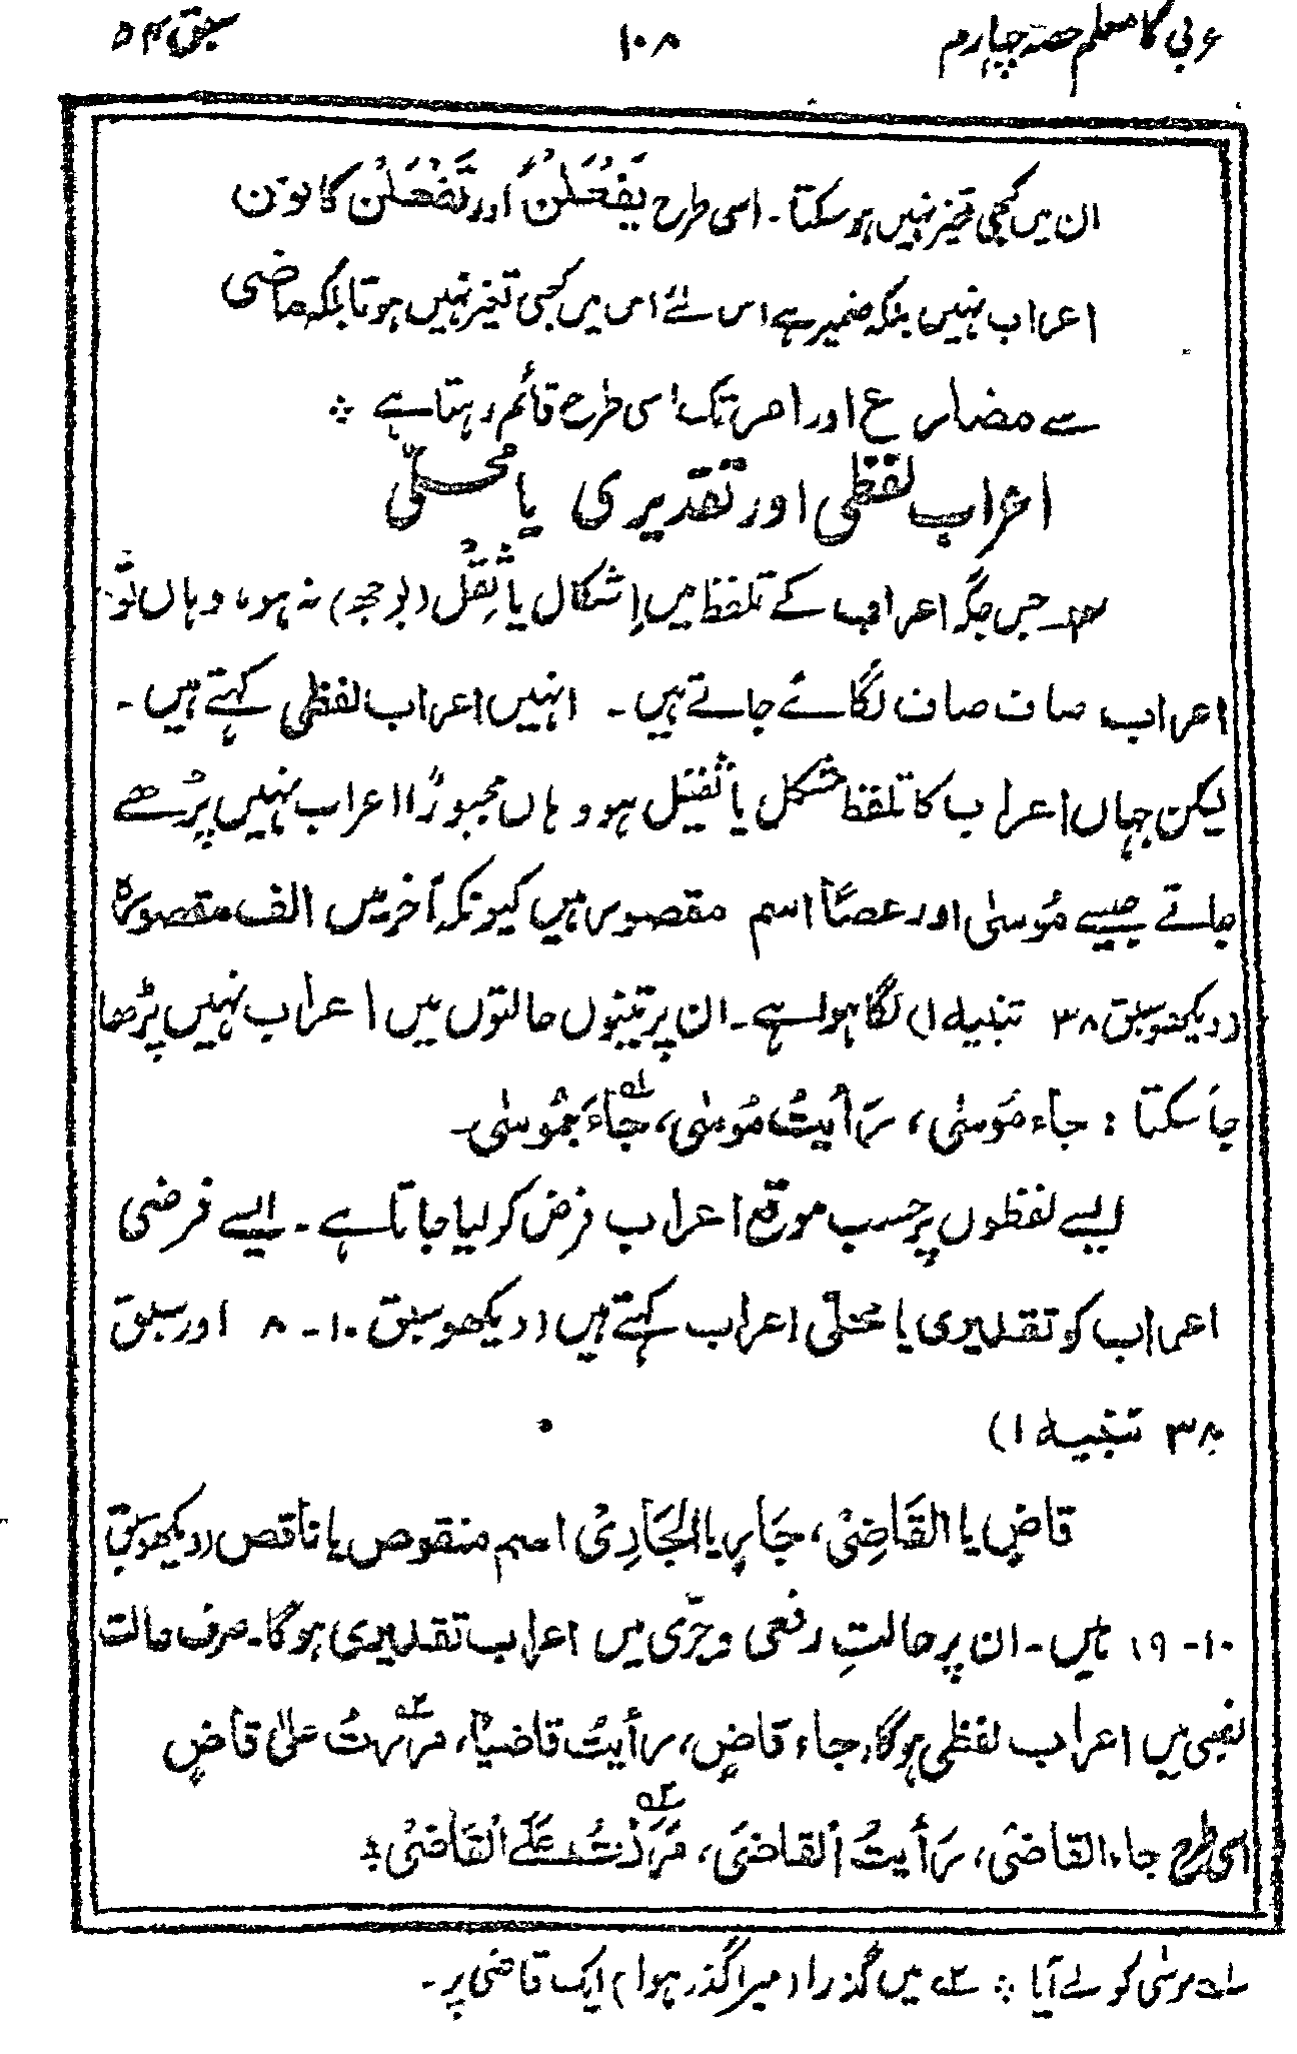 عربی کا معلم حصہ چہارم
۱۰۸
سبق ۵۴
ان میں کبھی تغیر نہیں ہو سکتا۔ اسی طرح یَفْعَلْنَ اور تَفْعَلْنَ کا نون
اعراب نہیں بلکہ ضمیر ہے اس لئے اس میں کبھی تغیر نہیں ہوتا بلکہ ماضی
سے مضارع اور امر تک اسی طرح قائم رہتا ہے ؞
اعراب لفظی اور تقدیری یا محلّی
جس جگہ اعراب کے تلفظ میں اِشکال یا ثِقْل (بوجھ) نہ ہو، وہاں تو
اعراب صاف صاف لگائے جاتے ہیں۔ انہیں اعراب لفظی کہتے ہیں۔
لیکن جہاں اعراب کا تلفظ مشکل یا ثقیل ہو وہاں مجبورًا اعراب نہیں پڑھے
جاتے جیسے مُوسٰی اور عصًا اسم مقصور ہیں کیونکہ آخر میں الف مقصورہ
(دیکھو سبق ۳۸ تنبیہ ۱) لگا ہوا ہے۔ ان پر تینوں حالتوں میں اعراب نہیں پڑھا
جا سکتا : جاء مُوسٰی، رَأیتُ مُوسٰی، جَاءَ بمُوسٰی۔
ایسے لفظوں پر حسب موقع اعراب فرض کر لیا جاتا ہے۔ ایسے فرضی
اعراب کو تقدیری یا محلّی اعراب کہتے ہیں (دیکھو سبق ۱۰-۸ اور سبق
۳۸ تنبیہ ۱)
قاضٍ یا القَاضِیْ، جَارٍ یا الجَارِیْ اسم منقوص یا ناقص (دیکھو سبق
۱۰-۱۹ ہیں۔ ان پر حالتِ رفعی و جرّی میں اعراب تقدیری ہوگا۔ صرف حالت
نصبی میں اعراب لفظی ہوگا، جاء قاضٍ، رأیتُ قاضیًا، مررتُ علیٰ قاضٍ
اسی طرح جاء القاضیْ، رَأیتُ القاضیَ، مَرَرْتُ عَلَے القَاضیْ ؞
لہ موسٰی کو لے آیا ؞ ۲ہ میں گذرا (میرا گذر ہوا) ایک قاضی پر۔